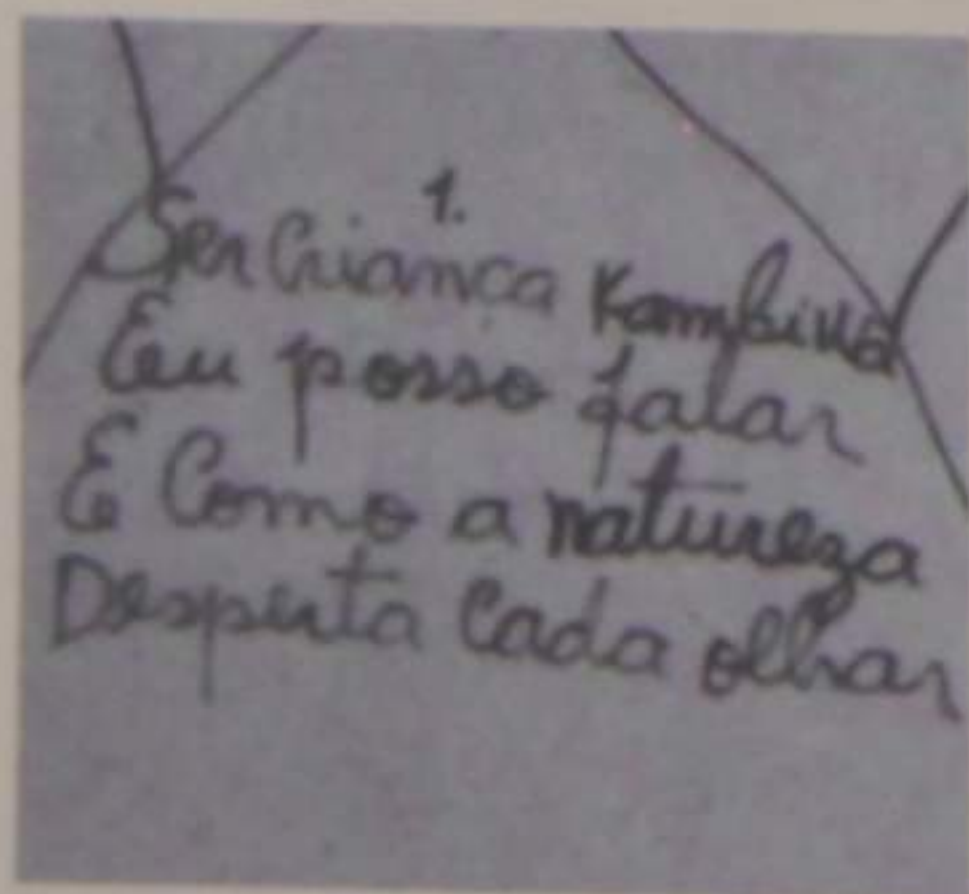 1.
Ser Criança Kambiwá
Eu posso falar
E Como a natureza
Desperta Cada olhar